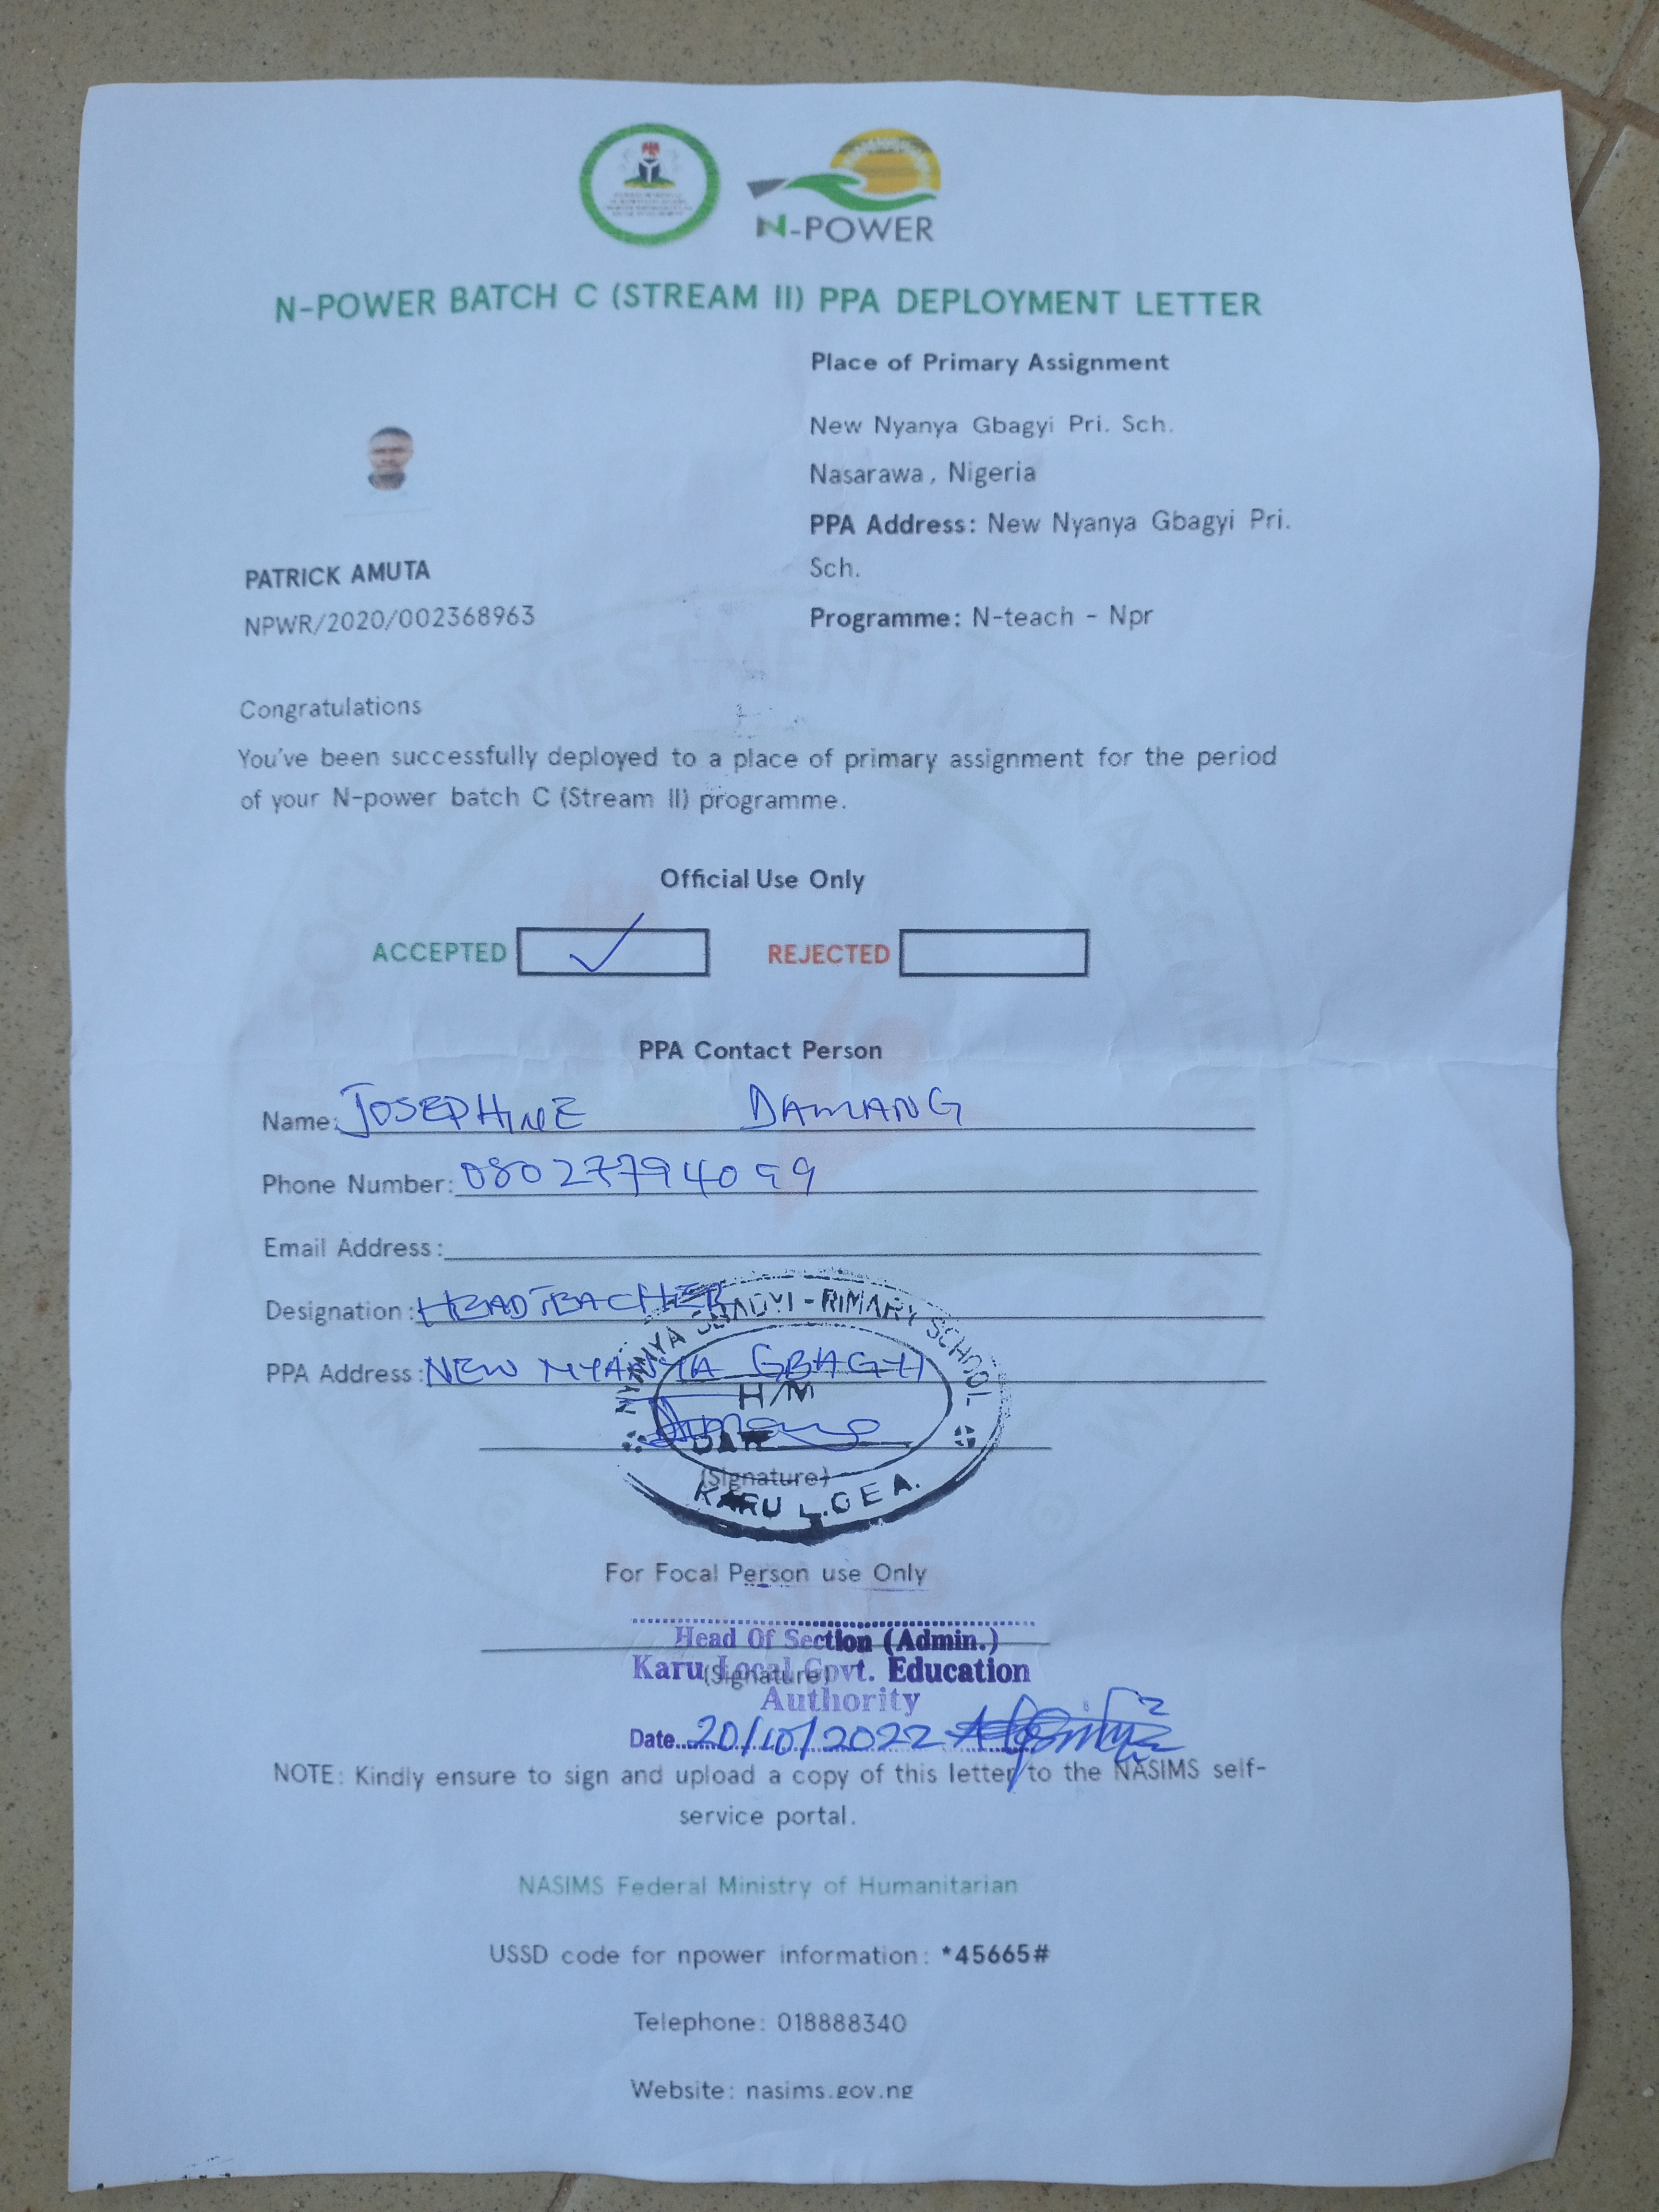 N-POWER
N-POWER BATCH C (STREAM II) PPA DEPLOYMENT LETTER
Place of Primary Assignment
New Nyanya Gbagyi Pri. Sch.
Nasarawa, Nigeria
PPA Address: New Nyanya Gbagyi Pri.
Sch.
Programme: N-teach - Npr
PATRICK AMUTA
NPWR/2020/002368963
Congratulations
You've been successfully deployed to a place of primary assignment for the period
of your N-power batch C (Stream II) programme.
Official Use Only
ACCEPTED ✓ REJECTED
PPA Contact Person
Name: JOSEPHINE DAMANG
Phone Number: 08027794099
Email Address:
Designation: HEADTEACHER
PPA Address: NEW NYANYA GBAGYI
NYANYA GBAGYI PRIMARY SCHOOL
H/M
DATE
(Signature)
KARU L.G E A.
For Focal Person use Only
Head Of Section (Admin.)
(Signature)
Karu Local Govt. Education
Authority
Date 20/10/2022
NOTE: Kindly ensure to sign and upload a copy of this letter to the NASIMS self-
service portal.
NASIMS Federal Ministry of Humanitarian
USSD code for npower information: *45665#
Telephone: 018888340
Website: nasims.gov.ng